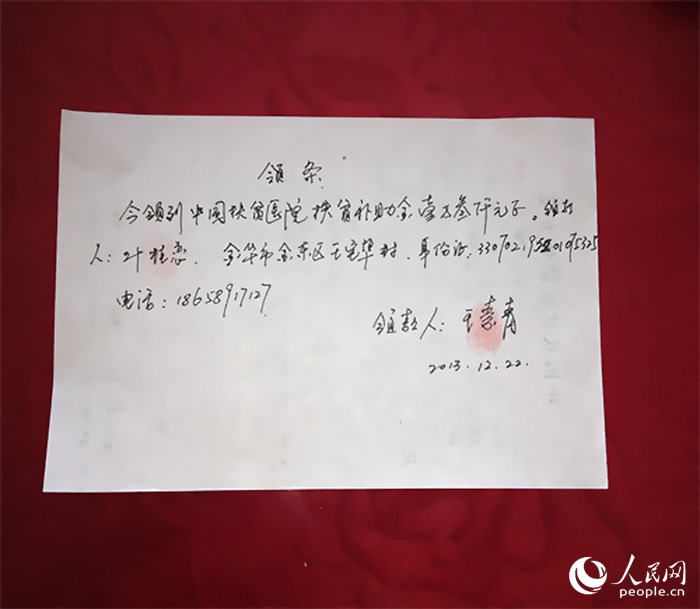 领条
今领到中国扶贫医院扶贫补助金壹万叁仟元子。领款
人：叶 金华市金东区王宅 村．身份证：330702195201095325
电话：18658917127
领款人：王素青
2013.12.22.
人民网
people.cn